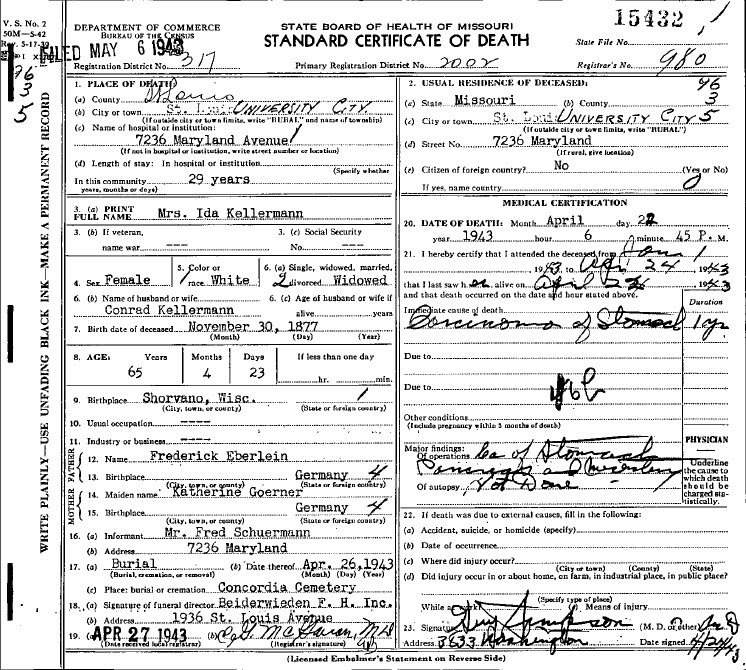 V. S. No. 2
50M—5-42
Rev. 5-17-39
DEPARTMENT OF COMMERCE
BUREAU OF THE CENSUS
FILED MAY 6 1943
STATE BOARD OF HEALTH OF MISSOURI
STANDARD CERTIFICATE OF DEATH
15432
State File No.
Registration District No. 317
Primary Registration District No. 2002
Registrar's No. 980
WRITE PLAINLY—USE UNFADING BLACK INK—MAKE A PERMANENT RECORD
1. PLACE OF DEATH:
(a) County St Louis
(b) City or town St. Louis UNIVERSITY CITY
(If outside city or town limits, write "RURAL" and name of township)
(c) Name of hospital or institution:
7236 Maryland Avenue
(If not in hospital or institution, write street number or location)
(d) Length of stay: In hospital or institution
(Specify whether
In this community 29 years
years, months or days)
2. USUAL RESIDENCE OF DECEASED: 96
(a) State Missouri (b) County 3
(c) City or town St. Louis UNIVERSITY CITY 5
(If outside city or town limits, write "RURAL")
(d) Street No. 7236 Maryland
(If rural, give location)
(e) Citizen of foreign country? No (Yes or No)
If yes, name country 0
3. (a) PRINT FULL NAME Mrs. Ida Kellermann
3. (b) If veteran, name war ---
3. (c) Social Security No. ---
4. Sex Female
5. Color or race White
6. (a) Single, widowed, married, divorced Widowed
6. (b) Name of husband or wife Conrad Kellermann
6. (c) Age of husband or wife if alive years
7. Birth date of deceased November 30, 1877
(Month) (Day) (Year)
8. AGE: Years Months Days If less than one day
65 4 23 hr. min.
9. Birthplace Shorvano, Wisc.
(City, town, or county) (State or foreign country)
10. Usual occupation ----
11. Industry or business ----
FATHER
12. Name Frederick Eberlein
13. Birthplace Germany 4
(City, town, or county) (State or foreign country)
MOTHER
14. Maiden name Katherine Goerner
15. Birthplace Germany 4
(City, town, or county) (State or foreign country)
16. (a) Informant Mr. Fred Schuermann
(b) Address 7236 Maryland
17. (a) Burial (b) Date thereof Apr. 26, 1943
(Burial, cremation, or removal) (Month) (Day) (Year)
(c) Place: burial or cremation Concordia Cemetery
18. (a) Signature of funeral director Beiderwieden F. H. Inc.
(b) Address 1936 St. Louis Avenue
19. (a) APR 27 1943 (b)
(Date received local registrar) (Registrar's signature)
MEDICAL CERTIFICATION
20. DATE OF DEATH: Month April day 22
year 1943 hour 6 minute 45 P. M.
21. I hereby certify that I attended the deceased from Jan 1
1943 to Apr 24 1943
that I last saw her alive on April 22 1943
and that death occurred on the date and hour stated above.
Duration
Immediate cause of death
Carcinoma of Stomach 1 yr.
Due to
Due to 46b
Other conditions
(Include pregnancy within 3 months of death)
PHYSICIAN
Major findings:
Of operations Ca of Stomach
Of autopsy Not Done
Underline the cause to which death should be charged statistically.
22. If death was due to external causes, fill in the following:
(a) Accident, suicide, or homicide (specify)
(b) Date of occurrence
(c) Where did injury occur?
(City or town) (County) (State)
(d) Did injury occur in or about home, on farm, in industrial place, in public place?
(Specify type of place)
While at work? (e) Means of injury
23. Signature (M. D. or other)
Address 3633 Washington Date signed 4/24/43
(Licensed Embalmer's Statement on Reverse Side)